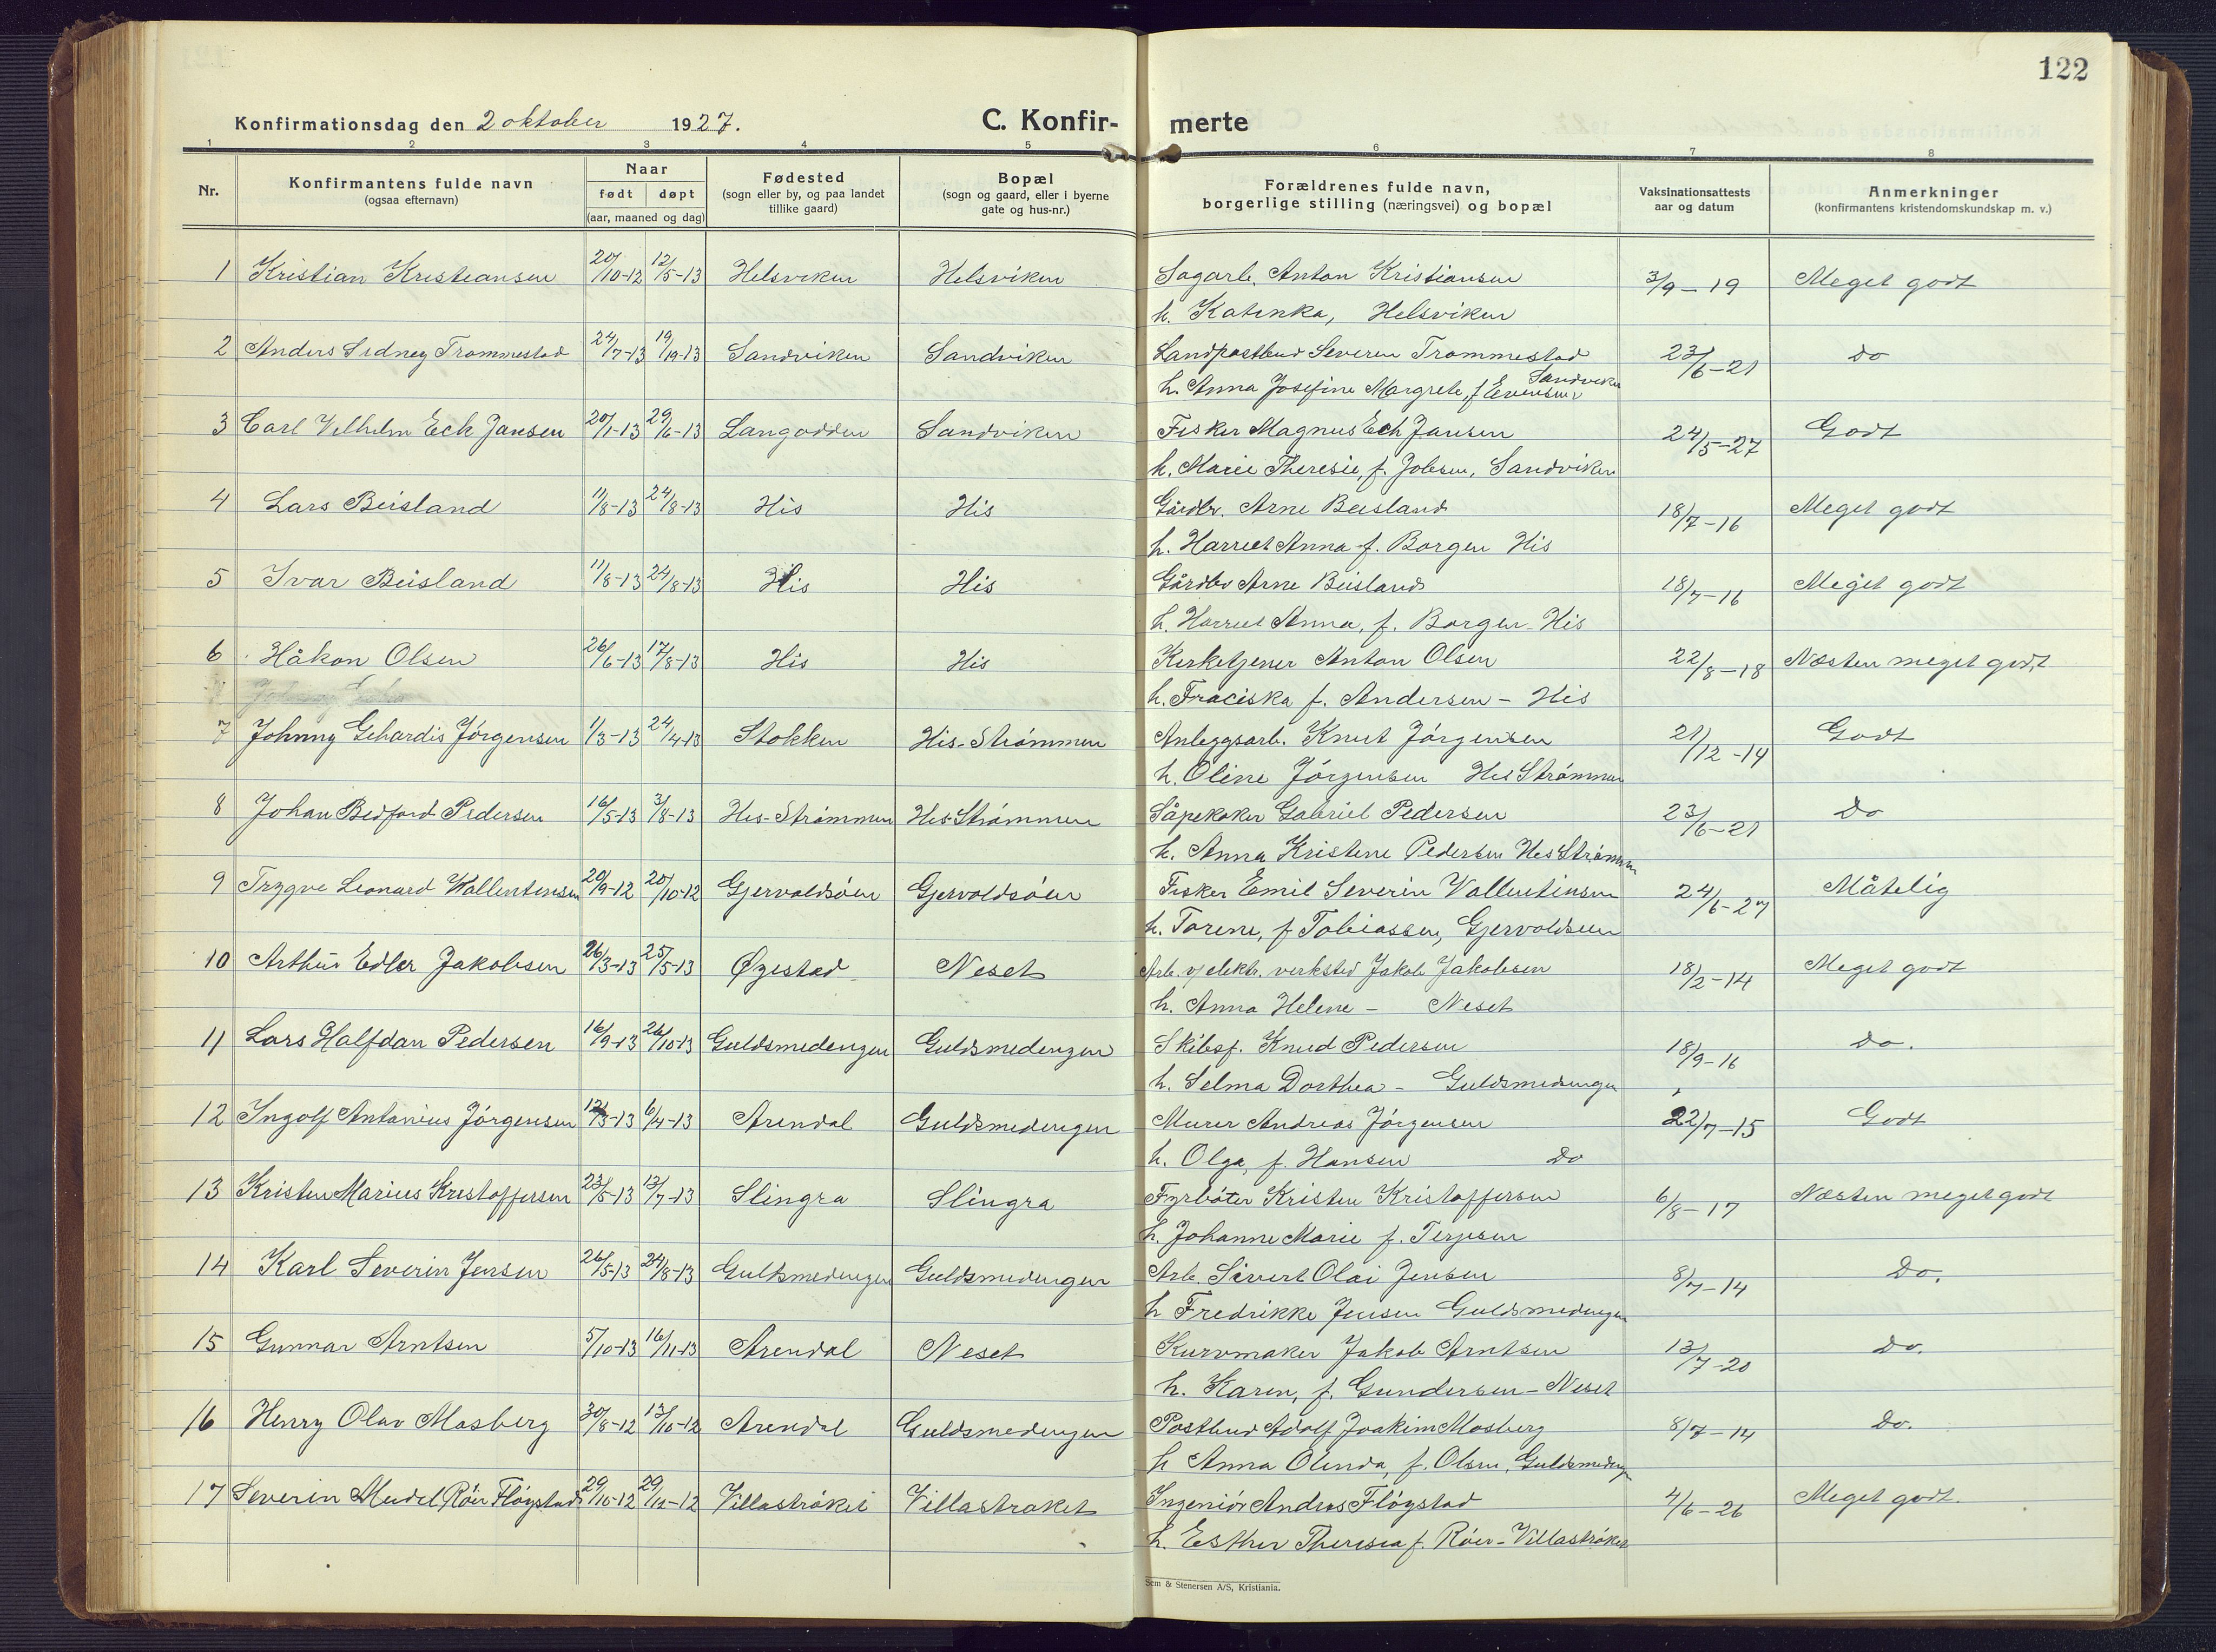 122
Konfirmationsdag den 2 oktober 1927.
C. Konfir- merte
1 2 3 4 5 6 7 8
Nr.
Konfirmantens fulde navn
(ogsaa efternavn)
Naar
født døpt
(aar, maaned og dag)
Fødested
(sogn eller by, og paa landet
tillike gaard)
Bopæl
(sogn og gaard, eller i byerne
gate og hus-nr.)
Forældrenes fulde navn,
borgerlige stilling (næringsvei) og bopæl
Vaksinationsattests
aar og datum
Anmerkninger
(konfirmantens kristendomskundskap m. v.)
1 Kristian Kristiansen 20/10-12 12/5-13 Helsviken Helsviken Sagarb. Anton Kristiansen 3/9-19 Meget godt
h. Katinka, Helsviken
2 Anders Sidney Trommestad 24/7-13 19/10-13 Sandviken Sandviken Landpostbud Severin Trommestad 23/6-21 do
h. Anna Josefine Margrete, f. Evensen Sandviken
3 Carl Vilhelm Eck Jansen 20/1-13 29/6-13 Langodden Sandviken Fisker Magnus Eck Jansen 24/5-27 Godt
h. Marie Theresie, f. Jobsen, Sandviken
4 Lars Beisland 11/8-13 24/8-13 His His Gårdbr. Arne Beisland 18/7-16 Meget godt
h. Harriet Anna f. Borgen His
5 Ivar Beisland 11/8-13 24/8-13 His His Gårdbr Arne Beisland 18/7-16 Meget godt
h. Harriet Anna, f. Borgen - His
6 Håkon Olsen 26/6-13 17/8-13 His His Kirketjener Anton Olsen 22/8-18 Næsten meget godt
h. Fraciska f. Andersen - His
7 Johnny Gehardis Jörgensen 1/3-13 24/4-13 Stokken His-Strömmen Anleggsarb. Knut Jörgensen 21/12-14 Godt
h. Oline Jörgensen His Strömmen
8 Johan Bedford Pedersen 16/5-13 3/8-13 His-Strömmen His Strömmen Såpekoker Gabriel Pedersen 23/6-21 Do
h. Anna Kristine Pedersen His Strömmen
9 Trygve Leonard Wallentinsen 20/9-12 20/10-12 Gjervoldsöen Gjervoldsöen Fisker Emil Severin Vallentinsen 24/6-27 Måtelig
h. Torine, f. Tobiassen, Gjervoldsöen
10 Arthur Edler Jakobsen 26/3-13 25/5-13 Øyestad Neset Arb. v/ elektr. verksted Jakob Jakobsen 18/2-14 Meget godt
h. Anna Helene - Neset
11 Lars Halfdan Pedersen 16/9-13 26/10-13 Guldsmedengen Guldsmedengen Skibsf. Knud Pedersen 18/9-16 Do.
h. Selma Dorthea - Guldsmedengen
12 Ingolf Antonius Jörgensen 12/3-13 6/4-13 Arendal Guldsmedengen Murer Andreas Jörgensen 22/7-15 Godt
h. Olga, f. Hansen Do
13 Kristen Marius Kristoffersen 23/5-13 13/7-13 Slingra Slingra Fyrböter Kristen Kristoffersen 6/8-17 Næsten meget godt
h. Johanne Marie f. Terjesen
14 Karl Severin Jensen 26/5-13 24/8-13 Guldsmedengen Guldsmedengen Arb. Sivert Olai Jensen 8/7-14 Do.
h Fredrikke Jensen Guldsmedengen
15 Gunnar Arntsen 5/10-13 16/11-13 Arendal Neset Kurvmaker Jakob Arntsen 13/7-20 Do.
h. Karen, f. Gundersen - Neset
16 Henry Olav Mosberg 30/8-12 13/10-12 Arendal Guldsmedengen Postbud Adolf Joakim Mosberg 8/7-14 Do.
h Anna Olinda, f. Olsen, Guldsmedeng
17 Severin Meidel Röer Flöystad 29/10-12 29/12-12 Villaströket Villastraket Ingeniör Andres Flöystad 4/6-26 Meget godt.
h. Esther Theresia f. Röer - Villaströket
Sem & Stenersen A/S, Kristiania.